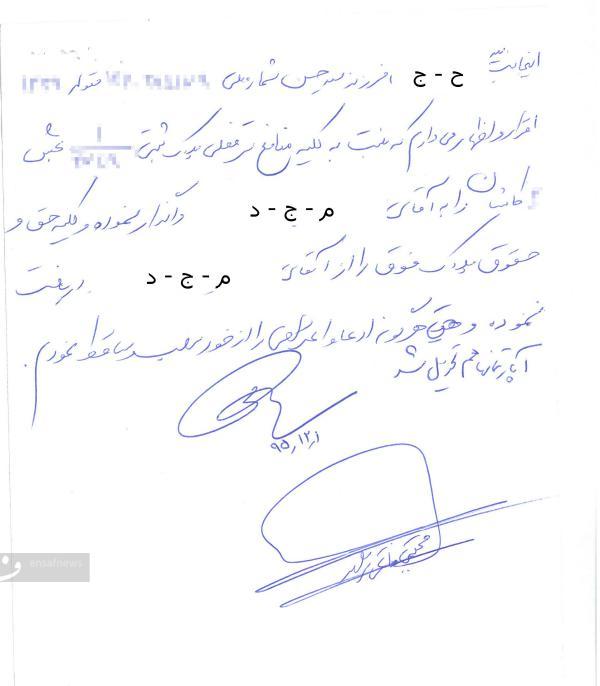 اینجانب ح - ج فرزند سید حسن شماره ملی متولد
اقرار و اظهار می دارم که نسبت به کلیه منافع سرقفلی پلاک ثبتی بخش
کاشان را به آقای م - ج - د واگذار نموده و کلیه حق و
حقوق پلاک فوق را از آقای م - ج - د دریافت
نموده و حق هرگونه ادعا و اعتراضی را از خود سلب و ساقط نمودم.
آپارتمانها هم تحویل شد
۹۵٫۱۲٫۱
ensafnews